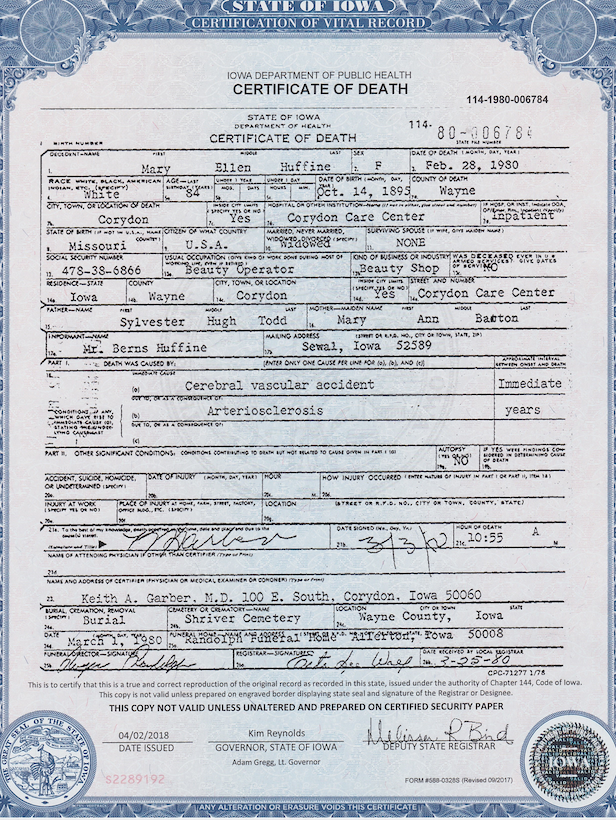 STATE OF IOWA
CERTIFICATION OF VITAL RECORD
IOWA DEPARTMENT OF PUBLIC HEALTH
CERTIFICATE OF DEATH
114-1980-006784
STATE OF IOWA
DEPARTMENT OF HEALTH
CERTIFICATE OF DEATH
114- 80-006784
BIRTH NUMBER STATE FILE NUMBER
DECEDENT—NAME FIRST MIDDLE LAST SEX DATE OF DEATH (MONTH, DAY, YEAR)
1. Mary Ellen Huffine 2. F 3. Feb. 28, 1980
RACE WHITE, BLACK, AMERICAN INDIAN, ETC. (SPECIFY) AGE—LAST BIRTHDAY (YEARS) UNDER 1 YEAR UNDER 1 DAY DATE OF BIRTH (MONTH, DAY, YEAR) COUNTY OF DEATH
MOS. DAYS HOURS MIN.
White 84 Oct. 14, 1895 Wayne
CITY, TOWN, OR LOCATION OF DEATH INSIDE CITY LIMITS (SPECIFY YES OR NO) HOSPITAL OR OTHER INSTITUTION—Name IF HOSP. OR INST.
Corydon Yes Corydon Care Center Inpatient
STATE OF BIRTH COUNTRY) CITIZEN OF WHAT COUNTRY MARRIED, NEVER MARRIED, WIDOWED, DIVORCED (SPECIFY) SURVIVING SPOUSE
Missouri U.S.A. Widowed NONE
SOCIAL SECURITY NUMBER USUAL OCCUPATION KIND OF BUSINESS OR INDUSTRY WAS DECEASED EVER IN
478-38-6866 Beauty Operator Beauty Shop NO
RESIDENCE—STATE COUNTY CITY, TOWN, OR LOCATION INSIDE CITY LIMITS (SPECIFY YES OR NO) STREET AND NUMBER
Iowa Wayne Corydon Yes Corydon Care Center
FATHER—NAME FIRST MIDDLE LAST MOTHER—MAIDEN NAME FIRST MIDDLE LAST
Sylvester Hugh Todd Mary Ann
INFORMANT—NAME MAILING ADDRESS (STREET OR R.F.D. NO., CITY OR TOWN, STATE, ZIP)
Mr. Berns Huffine Sewal, Iowa 52589
PART I. DEATH WAS CAUSED BY: [ENTER ONLY ONE CAUSE PER LINE FOR (a), (b), AND (c)] APPROXIMATE INTERVAL BETWEEN ONSET AND DEATH
IMMEDIATE CAUSE
(a) Cerebral vascular accident Immediate
DUE TO, OR AS A CONSEQUENCE OF:
(b) Arteriosclerosis years
DUE TO, OR AS A CONSEQUENCE OF:
CONDITIONS, IF ANY, WHICH GAVE RISE TO IMMEDIATE CAUSE
(c)
PART II. OTHER SIGNIFICANT CONDITIONS: CONDITIONS CONTRIBUTING TO DEATH BUT NOT RELATED TO CAUSE GIVEN IN PART I AUTOPSY (YES OR NO) IF YES WERE FINDINGS CONSIDERED IN DETERMINING CAUSE OF DEATH
NO
ACCIDENT, SUICIDE, HOMICIDE, OR UNDETERMINED (SPECIFY) DATE OF INJURY (MONTH, DAY, YEAR) HOUR HOW INJURY OCCURRED
20a. 20b. 20c. M. 20d.
INJURY AT WORK (SPECIFY YES OR NO) PLACE OF INJURY AT HOME, FARM, STREET, FACTORY, OFFICE BLDG., ETC. (SPECIFY) LOCATION (STREET OR R.F.D. NO., CITY OR TOWN, COUNTY, STATE)
DATE SIGNED HOUR OF DEATH
21b. 21c. 10:55 A M
NAME OF ATTENDING PHYSICIAN IF OTHER THAN CERTIFIER (Type or Print)
21d.
NAME AND ADDRESS OF CERTIFIER (PHYSICIAN OR MEDICAL EXAMINER OR CORONER) (Type or Print)
22. Keith A. Garber, M.D. 100 E. South, Corydon, Iowa 50060
BURIAL, CREMATION, REMOVAL (SPECIFY) CEMETERY OR CREMATORY—NAME LOCATION CITY OR TOWN STATE
Burial Shriver Cemetery Wayne County, Iowa
DATE (MONTH, DAY, YEAR) FUNERAL HOME—NAME AND ADDRESS
March 1, 1980 Randolph Funeral Home Allerton, Iowa 50008
FUNERAL DIRECTOR—SIGNATURE REGISTRAR—SIGNATURE DATE RECEIVED BY LOCAL REGISTRAR
3-25-80
CPC-71277 1/78
This is to certify that this is a true and correct reproduction of the original record as recorded in this state, issued under the authority of Chapter 144, Code of Iowa.
This copy is not valid unless prepared on engraved border displaying state seal and signature of the Registrar or Designee.
THIS COPY NOT VALID UNLESS UNALTERED AND PREPARED ON CERTIFIED SECURITY PAPER
04/02/2018 Kim Reynolds
DATE ISSUED GOVERNOR, STATE OF IOWA DEPUTY STATE REGISTRAR
Adam Gregg, Lt. Governor
S2289192
FORM #588-0328S (Revised 09/2017)
THE GREAT SEAL OF THE STATE OF IOWA
IOWA
ANY ALTERATION OR ERASURE VOIDS THIS CERTIFICATE